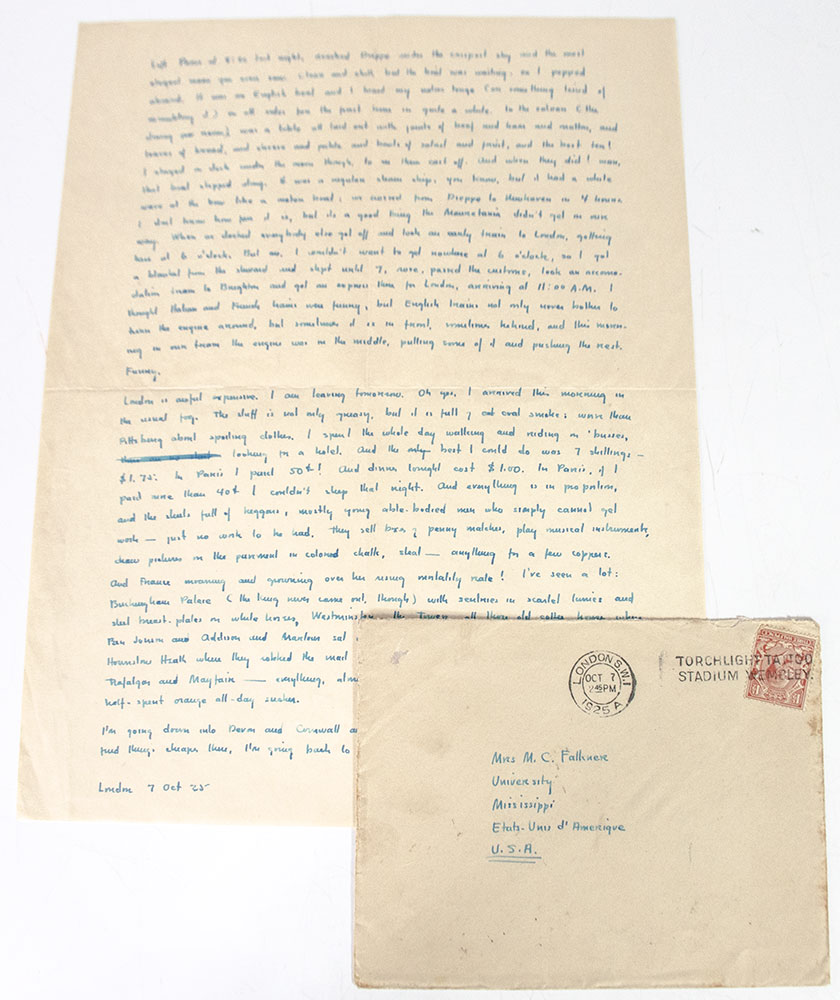 Left Paris at last night, reached Dieppe under the and the most
moon you ever saw. Clear and still, but the boat was waiting, so I popped
aboard. It was an English boat and I heard my native tongue (or something
resembling it) on all sides for the first time in quite a while. In the saloon (the
dining room) was a table all laid out with joints of beef and ham and mutton, and
loaves of bread, and cheese and pickle and bowls of salad and fruit, and the best tea!
I stayed on deck under the moon though, to see them cast off. And when they did! I swan,
that boat stepped along. It was a regular steam ship, you know, but it had a white
wave at the bow like a motor boat; we crossed from Dieppe to Newhaven in 4 hours
I don't know how far it is, but its a good thing the Mauretania didn't get in our
way. When we docked everybody else got off and took an early train to London, getting
here at 6 o'clock. But me, I wouldn't want to get nowhere at 6 o'clock, so I got
a blanket from the steward and slept until 7, rose, passed the customs, took an accomo-
dation train to Brighton and got an express there for London, arriving at 11:00 A.M. I
thought Italian and French trains were funny, but English trains not only never bother to
turn the engine around, but sometimes it is in front, sometimes behind, and this morn-
ing in our train the engine was in the middle, pulling some of it and pushing the rest.
Funny.
London is awful expensive. I am leaving tomorrow. Oh yes, I arrived this morning in
the usual fog. The stuff is not only greasy, but it is full of coal smoke: worse than
Pittsburg about spoiling clothes. I spent the whole day walking and riding on 'busses,
looking for a hotel. And the best I could do was 7 shillings —
$1.75. In Paris I paid 50¢! And dinner tonight cost $1.00. In Paris, if I
paid more than 40¢ I couldn't sleep that night. And everything is in proportion,
and the streets full of beggars, mostly young able-bodied men who simply cannot get
work — just no work to be had. They sell boxes of penny matches, play musical instruments,
draw pictures on the pavement in colored chalk, steal — anything for a few coppers.
And France moaning and groaning over her rising mortality rate! I've seen a lot:
Buckingham Palace (the king never came out, though) with sentries in scarlet tunics and
steel breast-plates on white horses, Westminster, the Tower, all those old coffee houses where
Ben Jonson and Addison and Marlowe sat
Hounslow Heath where they robbed the mail
Trafalgar and Mayfair — everything,
half-spent orange all-day sucker.
I'm going down into Devon and Cornwall
find things cheaper there, I'm going back to
London 7 Oct 25
LONDON S.W.1
OCT 7
2 45 PM
1925 A
TORCHLIGHT TATTOO
STADIUM WEMBLEY.
Mrs M. C. Falkner
University
Mississippi
Etats-Unis d'Amerique
U.S.A.